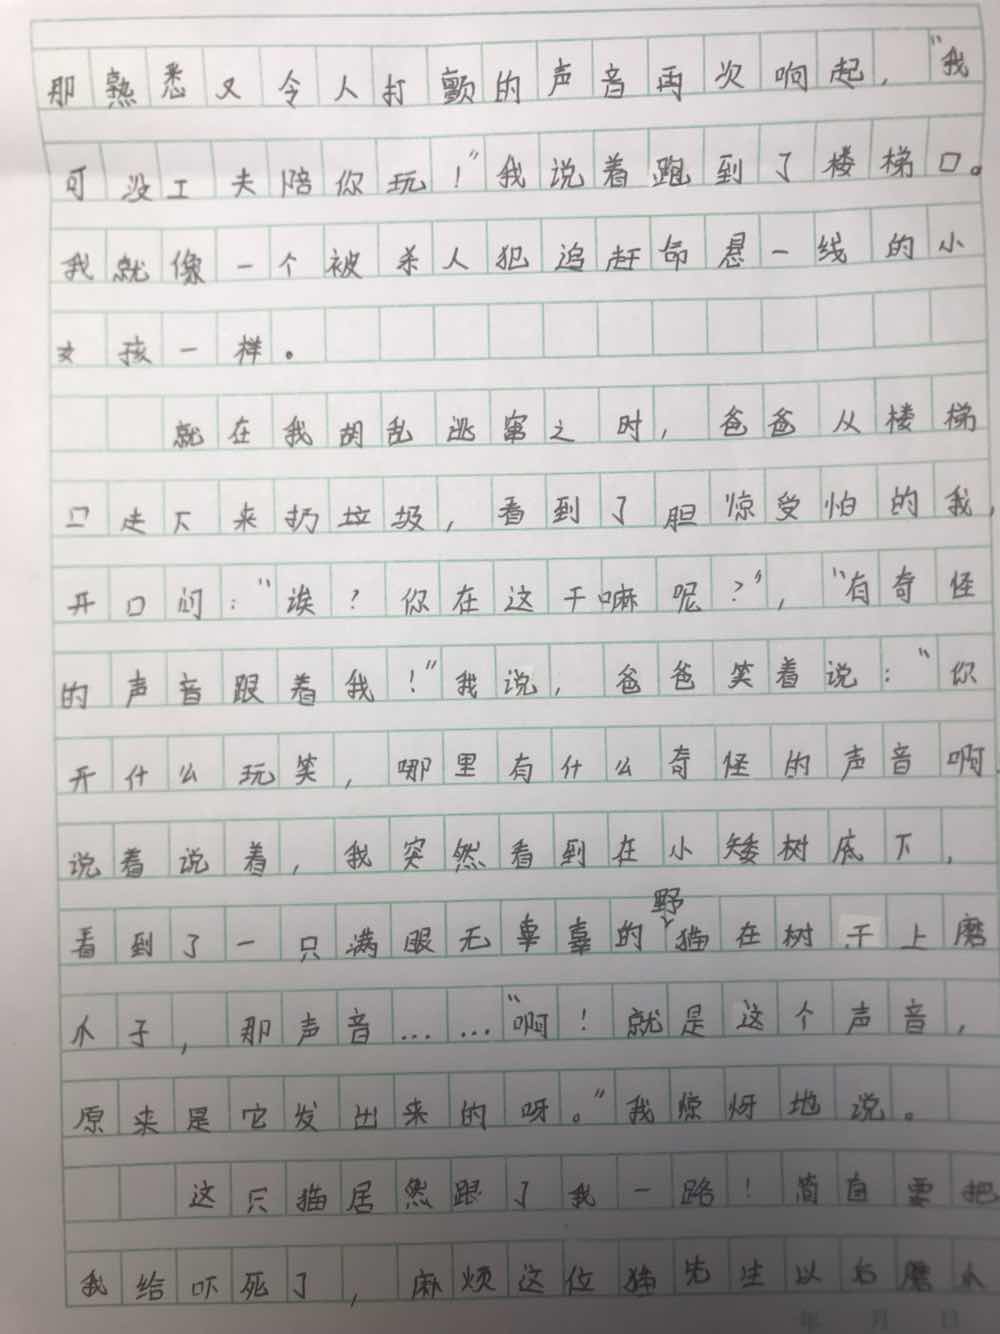 那熟悉又令人打颤的声音再次响起，“我
可没工夫陪你玩！”我说着跑到了楼梯口。
我就像一个被杀人犯追赶命悬一线的小
女孩一样。
就在我胡乱逃窜之时，爸爸从楼梯
口走下来扔垃圾，看到了胆惊受怕的我，
开口问：“诶？你在这干嘛呢？”，“有奇怪
的声音跟着我！”我说，爸爸笑着说：“你
开什么玩笑，哪里有什么奇怪的声音啊
说着说着，我突然看到在小矮树底下，
看到了一只满眼无辜的野猫在树干上磨
爪子，那声音……“啊！就是这个声音，
原来是它发出来的呀。”我惊讶地说。
这只猫居然跟了我一路！简直要把
我给吓死了，麻烦这位猫先生以后磨爪
年 月 日